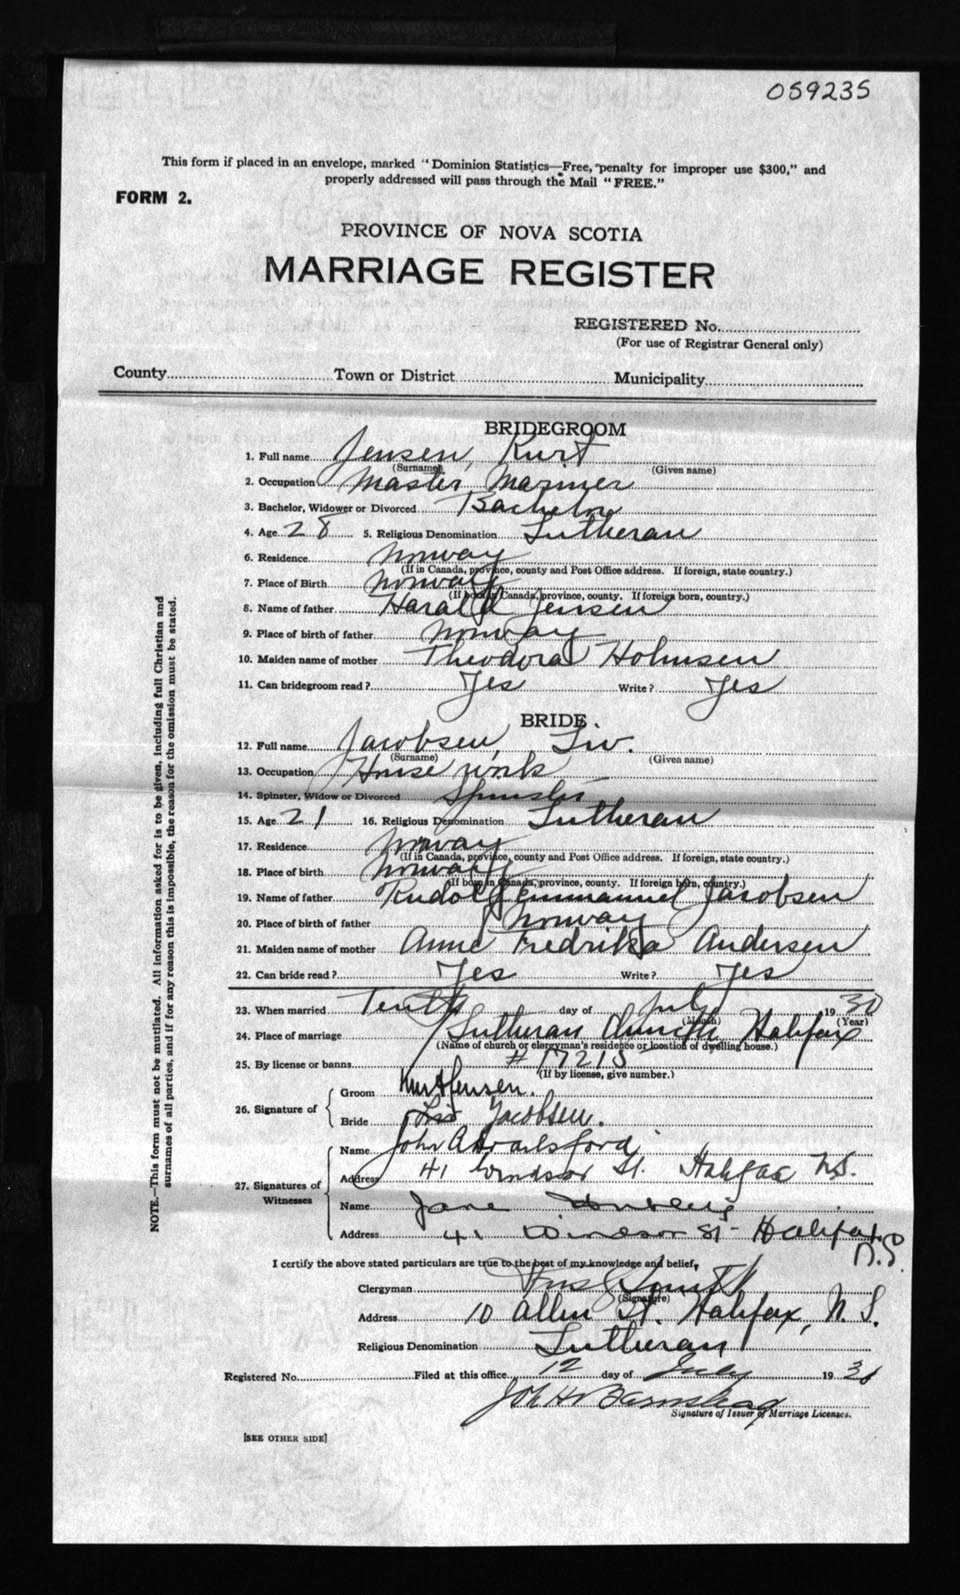 059235
This form if placed in an envelope, marked "Dominion Statistics—Free, penalty for improper use $300," and
properly addressed will pass through the Mail "FREE."
FORM 2.
PROVINCE OF NOVA SCOTIA
MARRIAGE REGISTER
REGISTERED No.
(For use of Registrar General only)
County Town or District Municipality
BRIDEGROOM
1. Full name Jensen, Kurt
(Surname) (Given name)
2. Occupation Master Mariner
3. Bachelor, Widower or Divorced Bachelor
4. Age 28 5. Religious Denomination Lutheran
6. Residence Norway
(If in Canada, province, county and Post Office address. If foreign, state country.)
7. Place of Birth Norway
(If born in Canada, province, county. If foreign born, country.)
8. Name of father Harald Jensen
9. Place of birth of father Norway
10. Maiden name of mother Theodora Holmsen
11. Can bridegroom read? Yes Write? Yes
BRIDE.
12. Full name Jacobsen, Liv.
(Surname) (Given name)
13. Occupation House work
14. Spinster, Widow or Divorced Spinster
15. Age 21 16. Religious Denomination Lutheran
17. Residence Norway
(If in Canada, province, county and Post Office address. If foreign, state country.)
18. Place of birth Norway
(If born in Canada, province, county. If foreign born, country.)
19. Name of father Rudolf Emmanuel Jacobsen
20. Place of birth of father Norway
21. Maiden name of mother Anne Fredrika Andersen
22. Can bride read? Yes Write? Yes
23. When married Tenth day of July 1930
(Month) (Year)
24. Place of marriage Lutheran Church Halifax
(Name of church or clergyman's residence or location of dwelling house.)
25. By license or banns # 17215
(If by license, give number.)
26. Signature of Groom Kurt Jensen.
Bride Liv Jacobsen.
27. Signatures of Witnesses Name John A Brailsford
Address 41 Windsor St. Halifax N.S.
Name Jane
Address 41 Windsor St- Halifax
N.S.
I certify the above stated particulars are true to the best of my knowledge and belief,
Clergyman
(Signature)
Address 10 Allen St. Halifax, N.S.
Religious Denomination Lutheran
Registered No. Filed at this office 12 day of July 1930
Joh H Barnstead
Signature of Issuer of Marriage Licenses.
[SEE OTHER SIDE]
NOTE.—This form must not be mutilated. All information asked for is to be given, including full Christian and
surnames of all parties, and if for any reason this is impossible, the reason for the omission must be stated.